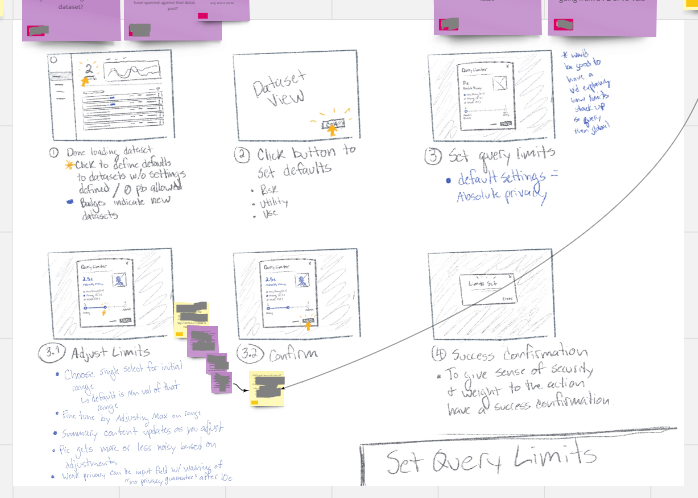 dataset?
have queried against that data
pool?
Dataset
View
Query Limiter
* would
be good to
have a
vid explaining
how limits
stack up
① Done loading dataset
* Click to define defaults
to datasets w/o settings
defined / Ø pb allowed
• Badges indicate new
datasets
② Click button to
set defaults
• Risk
• Utility
• Use
③ Set query limits
• default settings =
Absolute privacy
Query Limiter
Query Limiter
Limits Set
3.1 Adjust Limits
• Choose single select for initial
range
↳ default is min val of that
range
• Fine tune by Adjusting Max on range
• Summary content updates as you adjust
• Pic gets more or less noisy based on
adjustments
• Weak privacy can be input field w/ warning of
"no privacy guarantee" after 10ε
3.2 Confirm
④ Success Confirmation
• To give sense of security
& weight to the action
have a success confirmation
Set Query Limits